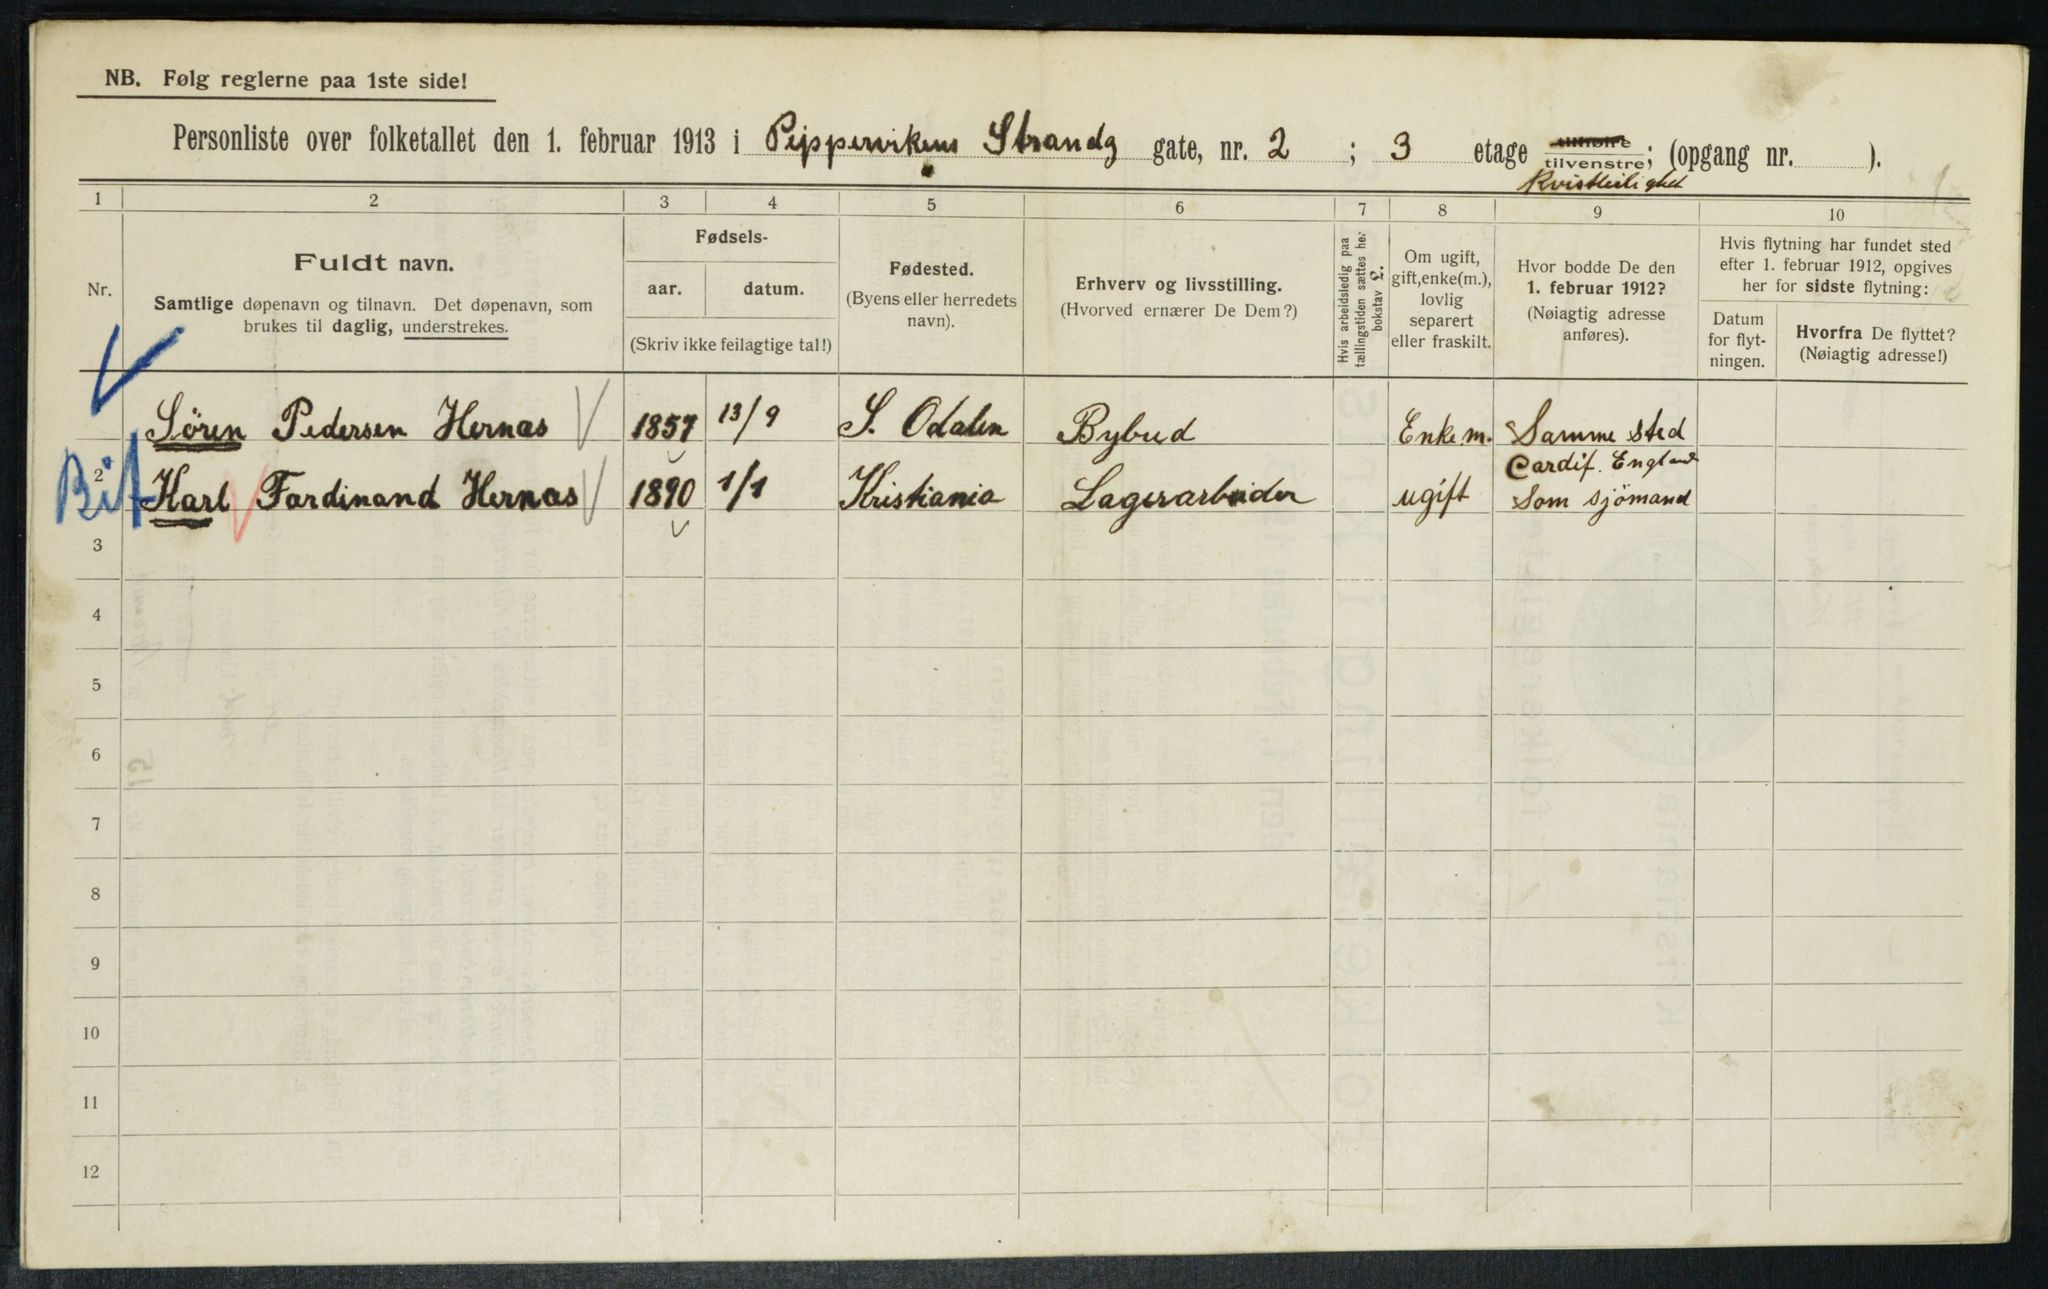 NB. Følg reglerne paa 1ste side!
Personliste over folketallet den 1. februar 1913 i Pippervikens Strandg gate, nr. 2 ; 3 etage tilhøire tilvenstre; (opgang nr. ).
Kvistleilighed
1 2 3 4 5 6 7 8 9 10
Nr.
Fuldt navn.
Samtlige døpenavn og tilnavn. Det døpenavn, som
brukes til daglig, understrekes.
Fødsels-
aar. datum.
(Skriv ikke feilagtige tal!)
Fødested.
(Byens eller herredets
navn).
Erhverv og livsstilling.
(Hvorved ernærer De Dem?)
Hvis arbeidsledig paa
tællingstiden sættes her
bokstav l.
Om ugift,
gift, enke(m.),
lovlig
separert
eller fraskilt.
Hvor bodde De den
1. februar 1912?
(Nøiagtig adresse
anføres).
Hvis flytning har fundet sted
efter 1. februar 1912, opgives
her for sidste flytning:
Datum
for flyt-
ningen.
Hvorfra De flyttet?
(Nøiagtig adresse!)
Sören Pedersen Hernas 1857 13/9 S. Odalen Bybud Enkem. Samme sted
Cardif. England
2 Karl Fardinand Hernas 1890 1/1 Kristiania Lagerarbeider ugift Som sjömand
Bif
3
4
5
6
7
8
9
10
11
12